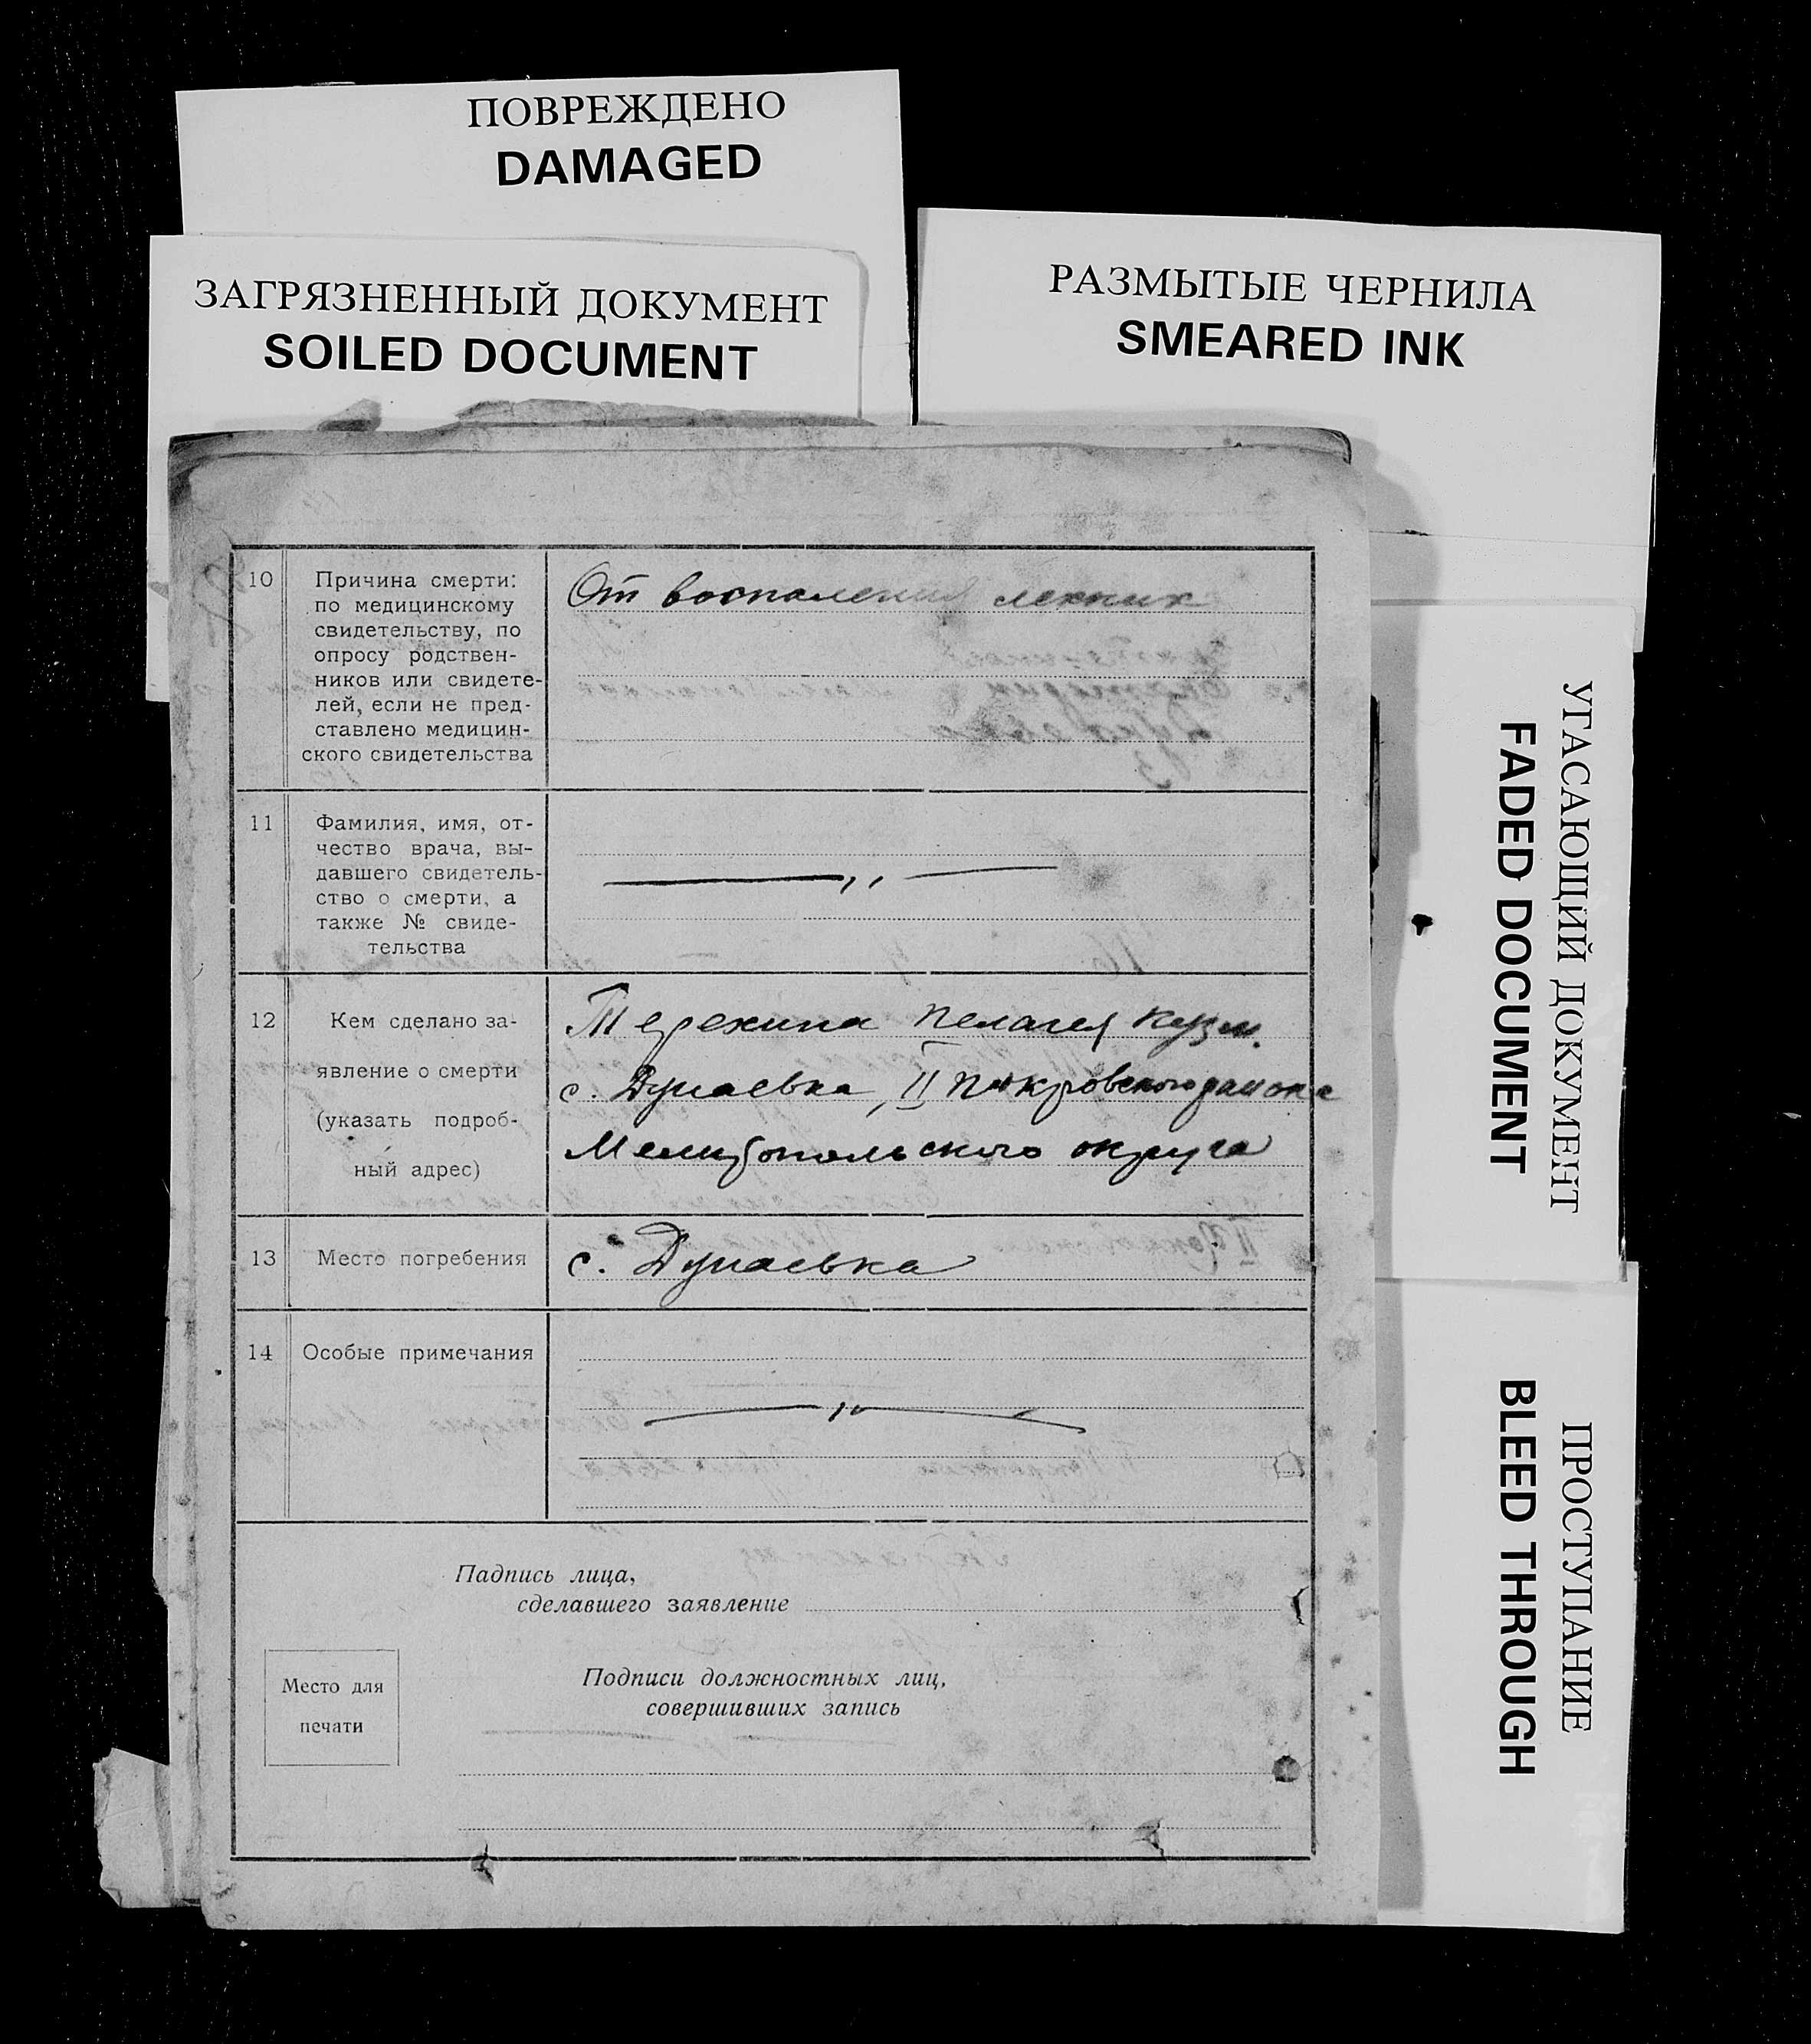 ПОВРЕЖДЕНО
DAMAGED
ЗАГРЯЗНЕННЫЙ ДОКУМЕНТ
SOILED DOCUMENT
РАЗМЫТЫЕ ЧЕРНИЛА
SMEARED INK
УГАСАЮЩИЙ ДОКУМЕНТ
FADED DOCUMENT
ПРОСТУПАНИЕ
BLEED THROUGH
10
Причина смерти:
по медицинскому
свидетельству, по
опросу родствен-
ников или свидете-
лей, если не пред-
ставлено медицин-
ского свидетельства
От воспаления легких
11
Фамилия, имя, от-
чество врача, вы-
давшего свидетель-
ство о смерти, а
также № свиде-
тельства
— „ —
12
Кем сделано за-
явление о смерти
(указать подроб-
ный адрес)
Терехина Пелагея Кузм.
с. Дунаевка, II Покровского района
Мелитопольского округа
13
Место погребения
с. Дунаевка
14
Особые примечания
— „ —
Падпись лица,
сделавшего заявление
Место для
печати
Подписи должностных лиц,
совершивших запись